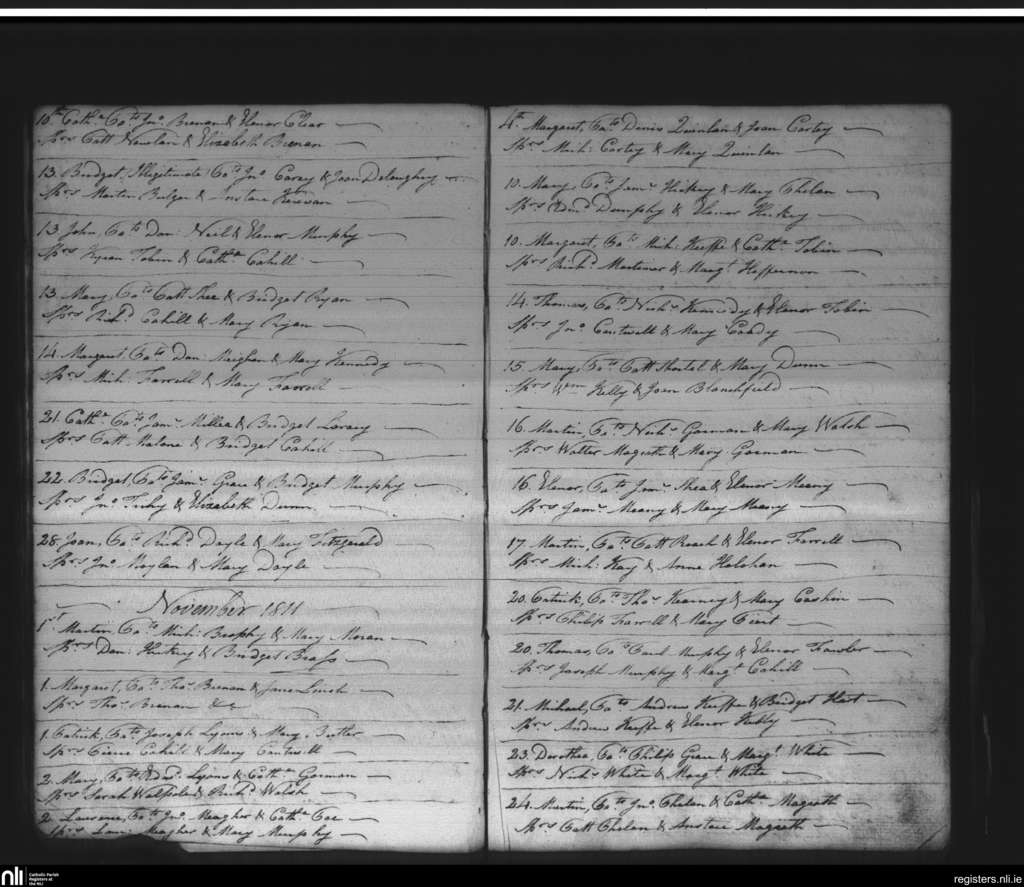 10th Cathe. Bapts. Jno. Brenan & Elenor Clear
Sprs Patt Nowlan & Elizabeth Brenan
13. Bridget, Illigitimate Bapts. Jno. Carey & Joan Delaughny
Sprs Martin Bulger & Anstace
13. John, Bapts Dan: Neil & Elenor Murphy
Sprs Kyran Tobin & Cathe. Cahill
13. Mary, Bapts Patt Shee & Bridget Ryan
Sprs Richd. Cahill & Mary Ryan
14. Margaret, Bapts Dan: Meighan & Mary Kennedy
Sprs Mich: Farrell & Mary Farrell
21. Cathe. Bapts Jams. Millea & Bridget
Sprs Patt Malone & Bridget Cahill
22. Bridget, Bapts Jams. Grace & Bridget Murphy
Sprs Jno. & Elizabeth Dunn
28. Joan, Bapts Richd. Doyle & Mary Fitzgerald
Sprs Jno. Moylan & Mary Doyle
November 1811
1st Martin, Bapts Mich: Brophy & Mary Moran
Sprs Dan: & Bridget
1. Margaret, Bapts Thos. Brenan & Jane
Sprs Thos. Brenan &c
1. Patrick, Bapts Joseph Lyons & Mary Butler
Sprs Pierce Cahill & Mary Cantwell
2. Mary, Bapts Edmd. Lyons & Cathe. Gorman
Sprs Sarah Walpole & Richd. Walsh
2. Lawrence, Bapts Jno. Meagher & Cathe. Coe
Sprs Meagher & Mary Murphy
4th Margaret, Bapts Denis Quinlan & Joan Cortey
Sprs Mich: Cortey & Mary Quinlan
10. Mary, Bapts Jams. Hickey & Mary Phelan
Sprs Edmd. Dumphy & Elenor Hickey
10. Margaret, Bapts Mich: Keeffe & Cathe. Tobin
Sprs Richd. Mortimer & Margt. Heffernon
14. Thomas, Bapts Nichs. Kennedy & Elenor Tobin
Sprs Jno. Cantwell & Mary Coady
15. Mary, Bapts Patt Shortel & Mary Dunn
Sprs Wm. Kelly & Joan Blanchfield
16. Martin, Bapts Nichs. Gorman & Mary Walsh
Sprs Walter Magrath & Mary Gorman
16. Elenor, Bapts Jams. Shea & Elenor Meany
Sprs Jams. Meany & Mary Meany
17. Martin, Bapts Patt Roach & Elenor Farrell
Sprs Mich: Kay & Anne Holohan
20. Patrick, Bapts Thos. Kearney & Mary Cashin
Sprs Philip Farrell & Mary
20. Thomas, Bapts Paul Murphy & Elenor Fowler
Sprs Joseph Murphy & Margt. Cahill
21. Michael, Bapts Andrew Keeffe & Bridget Hart
Sprs Andrew Keeffe & Elenor
23. Dorothea, Bapts Philip Grace & Margt. White
Sprs Nichs White & Margt. White
24. Martin, Bapts Jno. Phelan & Cathe. Magrath
Sprs Patt Phelan & Anstace Magrath
nli
Catholic Parish
Registers at
the NLI
registers.nli.ie